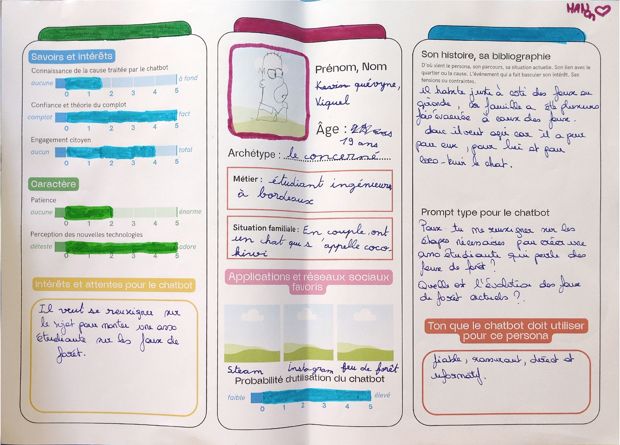 HAN
Savoirs et intérêts
Connaissance de la cause traitée par le chatbot
aucune
à fond
0 1 2 3 4 5
Confiance et théorie du complot
complot
fact
0 1 2 3 4 5
Engagement citoyen
aucun
total
0 1 2 3 4 5
Caractère
Patience
aucune
énorme
0 1 2 3 4 5
Perception des nouvelles technologies
déteste
adore
0 1 2 3 4 5
Intérêts et attentes pour le chatbot
Il veut se renseigner sur
le sujet pour monter une asso
étudiante sur les feux de
forêt.
Prénom, Nom
Kevin
Viguel
Âge : ans
19 ans
Archétype : le concerné
Métier : étudiant ingénieur
à bordeaux
Situation familiale : En couple, ont
un chat qui s'appelle coco-
kiwi
Applications et réseaux sociaux
favoris
Steam instagram feu de forêt
Probabilité d'utilisation du chatbot
faible
élevé
0 1 2 3 4 5
Son histoire, sa bibliographie
D'où vient le persona, son parcours, sa situation actuelle. Son lien avec le
quartier ou la cause. L'événement qui a fait basculer son intérêt. Ses
tensions ou contraintes.
il habite juste à côté des feux en
gironde, sa famille a été plusieurs
fois évacuée à cause des feux.
donc il veut agir car il a peur
pour eux, pour lui et pour
coco-kiwi le chat.
Prompt type pour le chatbot
Peux tu me renseigner sur les
étapes nécessaires pour créer une
asso étudiante qui parle des
feux de forêt ?
Quelle est l'évolution des feux
de forêt actuels ?
Ton que le chatbot doit utiliser
pour ce persona
fiable, rassurant, direct et
informatif.